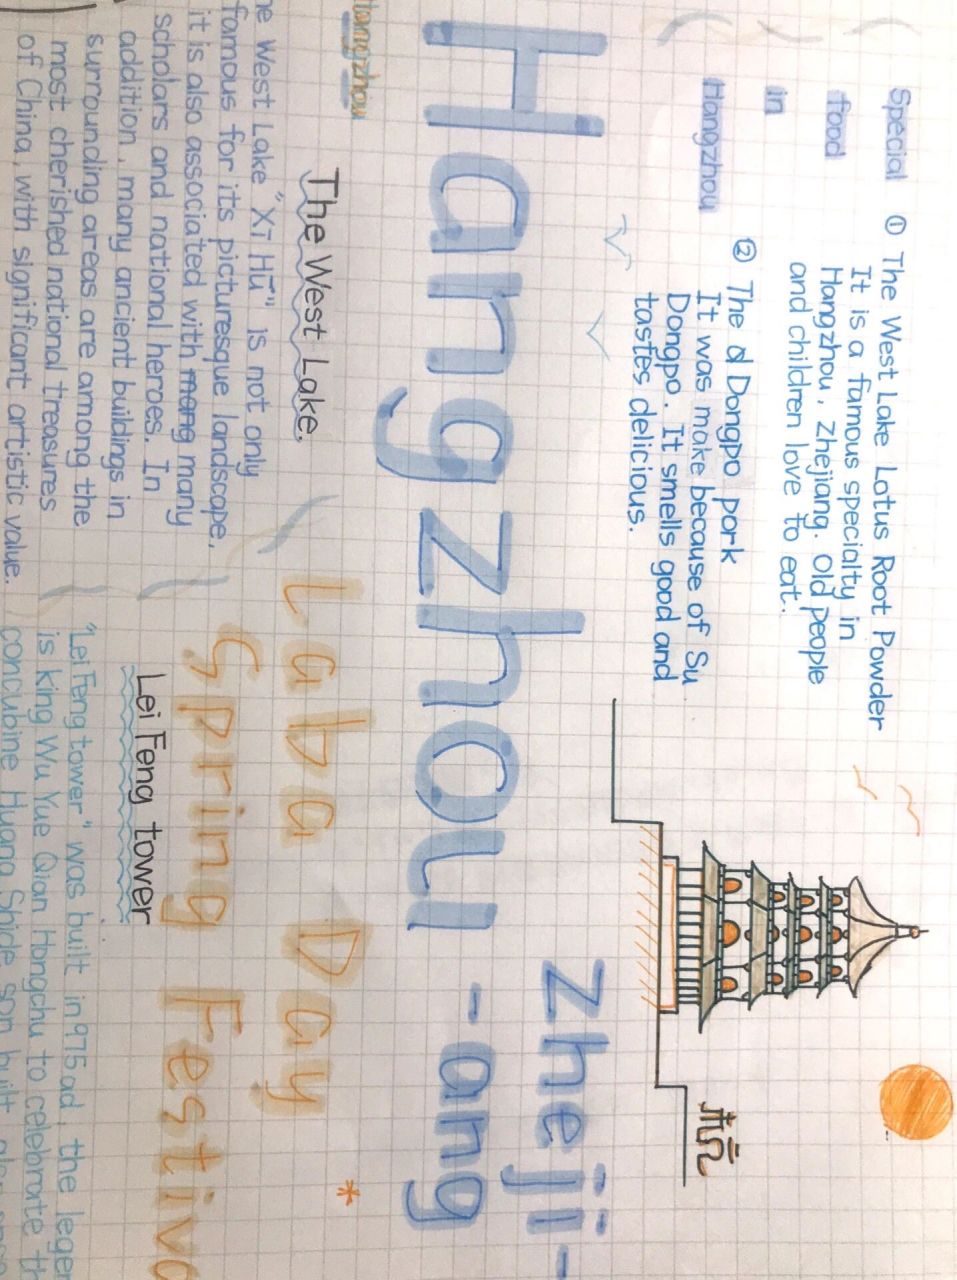 Special
food
in
Hangzhou
① The West Lake Lotus Root Powder
It is a famous specialty in
Hangzhou, zhejiang. Old people
and children love to eat.
② The Dongpo pork
It was make because of Su
Dongpo. It smells good and
tastes delicious.
杭
zheji-
Hangzhou -ang
Hangzhou
Laba Day
Spring Festiva
The West Lake.
he West Lake "Xī Hú" is not only
famous for its picturesque landscape,
it is also associated with many
scholars and national heroes. In
addition, many ancient buildings in
surrounding areas are among the
most cherished national treasures
of China, with significant artistic value.
Lei Feng tower
"Lei Feng tower" was built in 975 ad, the legen
is king Wu Yue Qian Hongchu to celebrate th
concubine Huang Shide son built